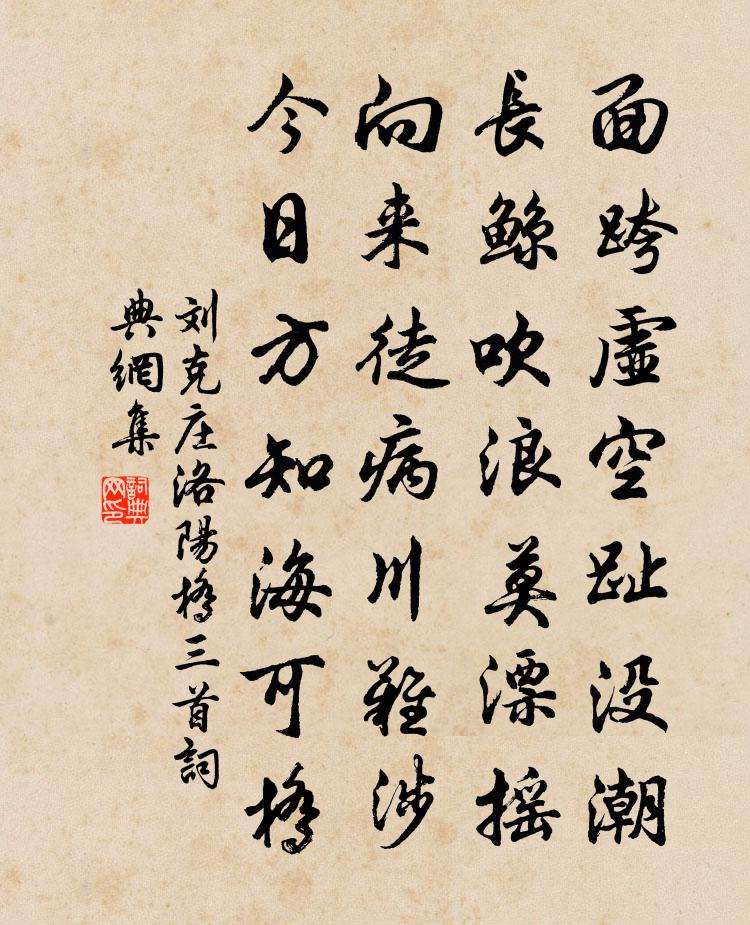 面跨虛空趾没潮
長鲸吹浪莫漂摇
向来徒病川難涉
今日方知海可橋
刘克庄洛陽橋三首詞
典網集
詞典网印